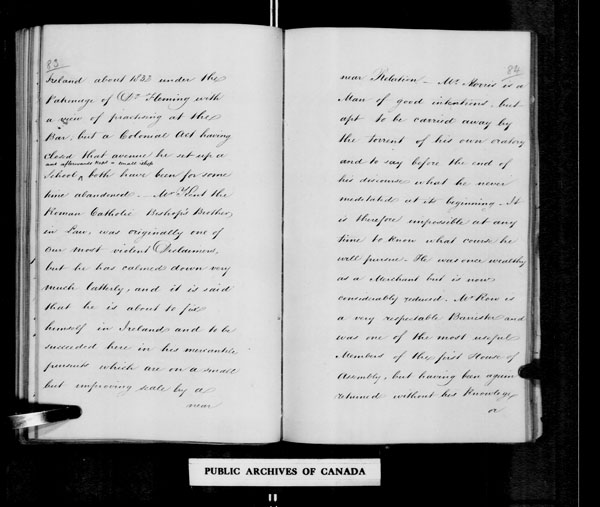 83
Ireland about 1832 under the
Patronage of Dr Fleming with
a view of practising at the
Bar, but a Colonial Act having
closed that avenue he set up a
and afterwards kept a small shop
School, both have been for some
time abandoned. Mr Kent the
Roman Catholic Bishop's Brother
in Law, was originally one of
our most violent Declaimers,
but he has calmed down very
much latterly, and it is said
that he is about to fix
himself in Ireland and to be
succeeded here in his mercantile
pursuits which are on a small
but improving scale by a
near
84
near Relation - Mr Morris is a
Man of good intentions, but
apt to be carried away by
the torrent of his own oratory
and to say before the end of
his discourse what he never
meditated at its beginning - It
is therefore impossible at any
time to know what course he
will pursue - He was once wealthy
as a Merchant but is now
considerably reduced. Mr Row is
a very respectable Barrister and
was one of the most useful
Members of the first House of
Assembly, but having been again
returned without his knowledge
or
PUBLIC ARCHIVES OF CANADA